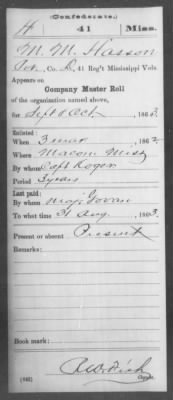 (Confederate.)
H 41 Miss.
M. M. Hasson
Pvt, Co. L, 41 Reg't Mississippi Vols.
Appears on
Company Muster Roll
of the organization named above,
for Sept & Oct, 1863.
Enlisted:
When 3 Mar, 1862.
Where Macon, Miss
By whom Capt Rogers
Period 3 years
Last paid:
By whom Maj. Govan
To what time 31 Aug, 1863.
Present or absent Present
Remarks:
Book mark:
(642) Copyist.